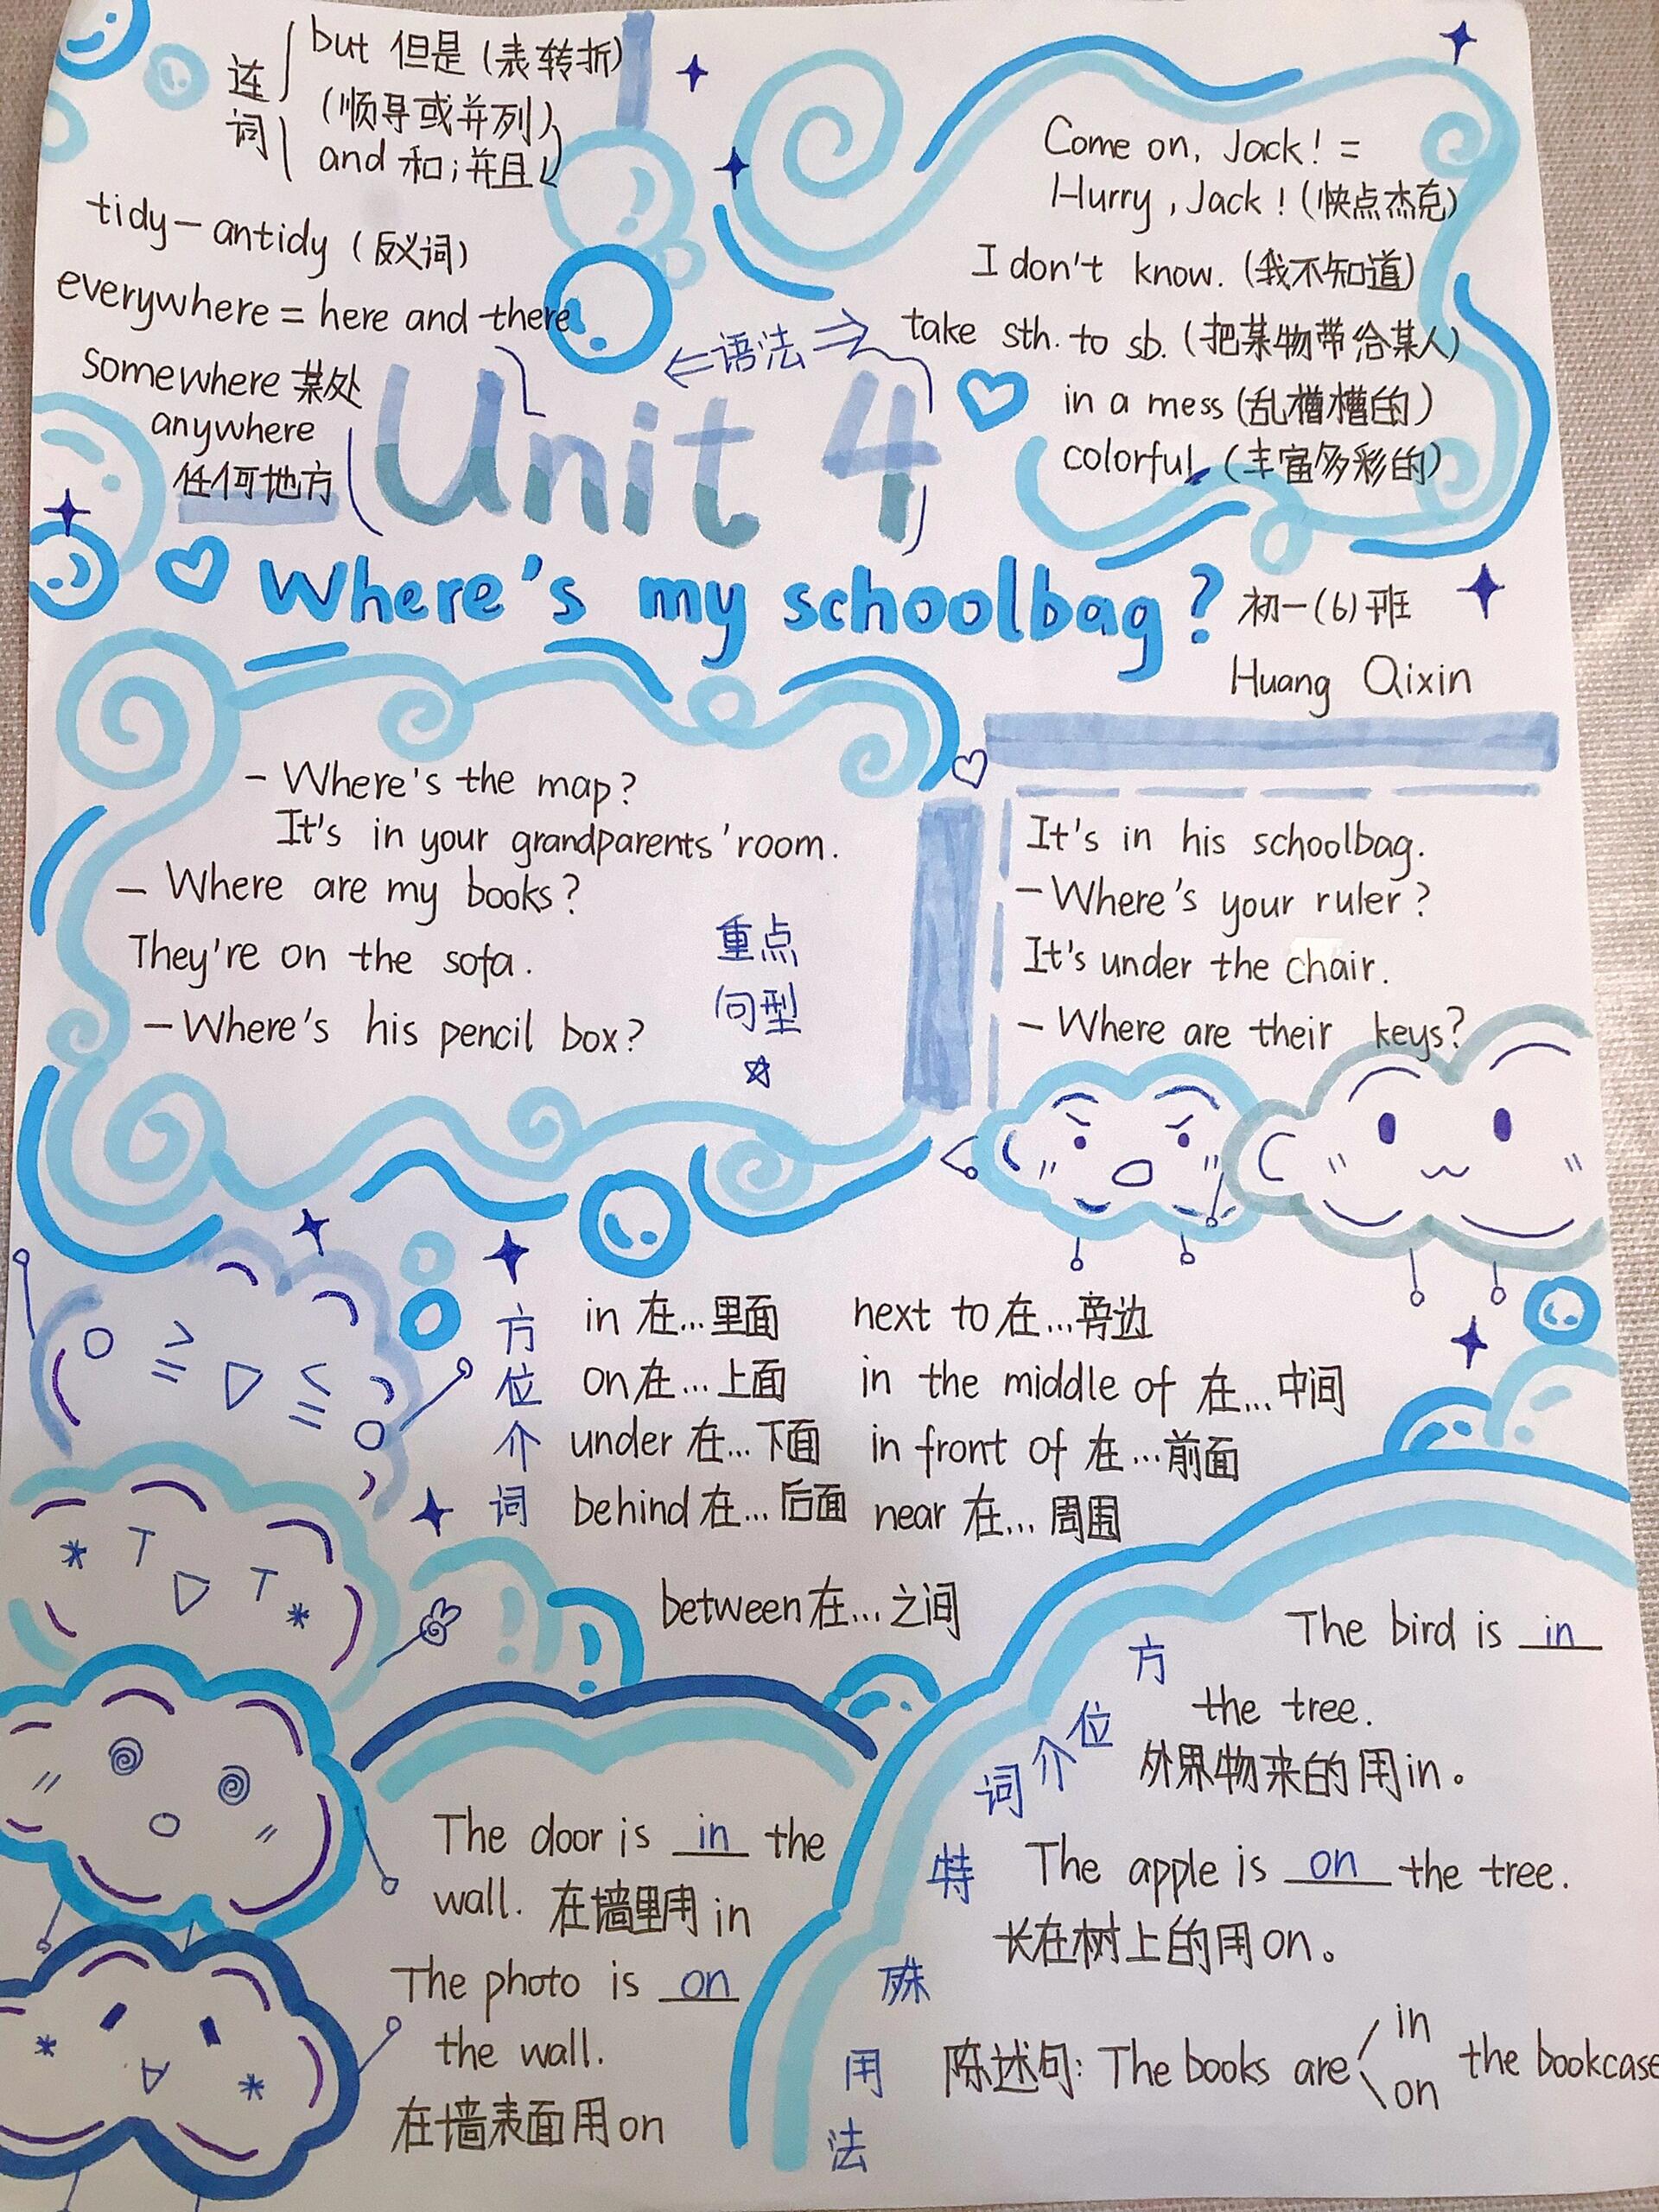 连词
but 但是 (表转折)
(顺寻或并列)
and 和;并且
tidy-antidy (反义词)
everywhere = here and there
somewhere 某处
anywhere
任何地方
←语法⇒
Come on, Jack! =
Hurry, Jack! (快点杰克)
I don't know. (我不知道)
take sth. to sb. (把某物带给某人)
in a mess (乱糟糟的)
colorful (丰富多彩的)
Unit 4
Where's my schoolbag?
初一(6)班
Huang Qixin
- Where's the map?
It's in your grandparents' room.
- Where are my books?
They're on the sofa.
- Where's his pencil box?
重点
句型
It's in his schoolbag.
- Where's your ruler?
It's under the chair.
- Where are their keys?
方位介词
in 在...里面 next to 在...旁边
on 在...上面 in the middle of 在...中间
under 在...下面 in front of 在...前面
behind 在...后面 near 在...周围
between 在...之间
The door is in the
wall. 在墙里用 in
The photo is on
the wall.
在墙表面用 on
方位介词特殊用法
The bird is in
the tree.
外界物来的用 in。
The apple is on the tree.
长在树上的用 on。
陈述句: The books are in/on the bookcase